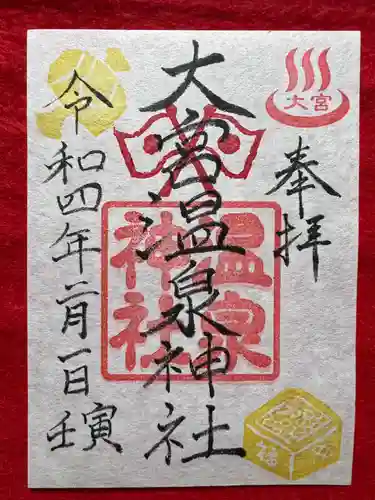 大宮
奉拝
大宮温泉神社
温泉
神社
令和四年二月一日
壬寅
福